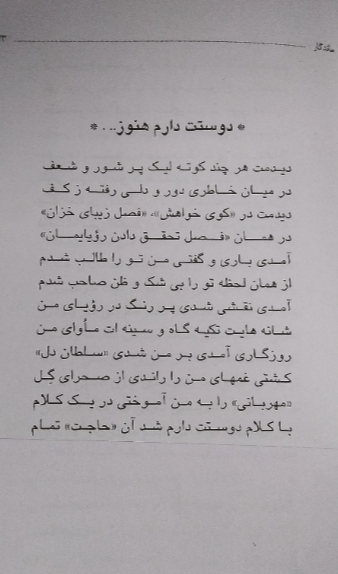 ماندگار
۳
* دوستت دارم هنوز... *
دیدمت هر چند کوته لیک پر شور و شعف
در میان خاطری دور و دلی رفته ز کف
دیدمت در «کوی خواهش»، «فصل زیبای خزان»
در همان «فصل تحقق دادن رؤیایمان»
آمدی باری و گفتی من تو را طالب شدم
از همان لحظه تو را بی شک و ظن صاحب شدم
آمدی نقشی شدی پر رنگ در رؤیای من
شانه هایت تکیه گاه و سینه ات مأوای من
روزگاری آمدی بر من شدی «سلطان دل»
کشتی غمهای من را راندی از صحرای گِل
«مهربانی» را به من آموختی در یک کلام
با کلام دوستت دارم شد آن «حاجت» تمام